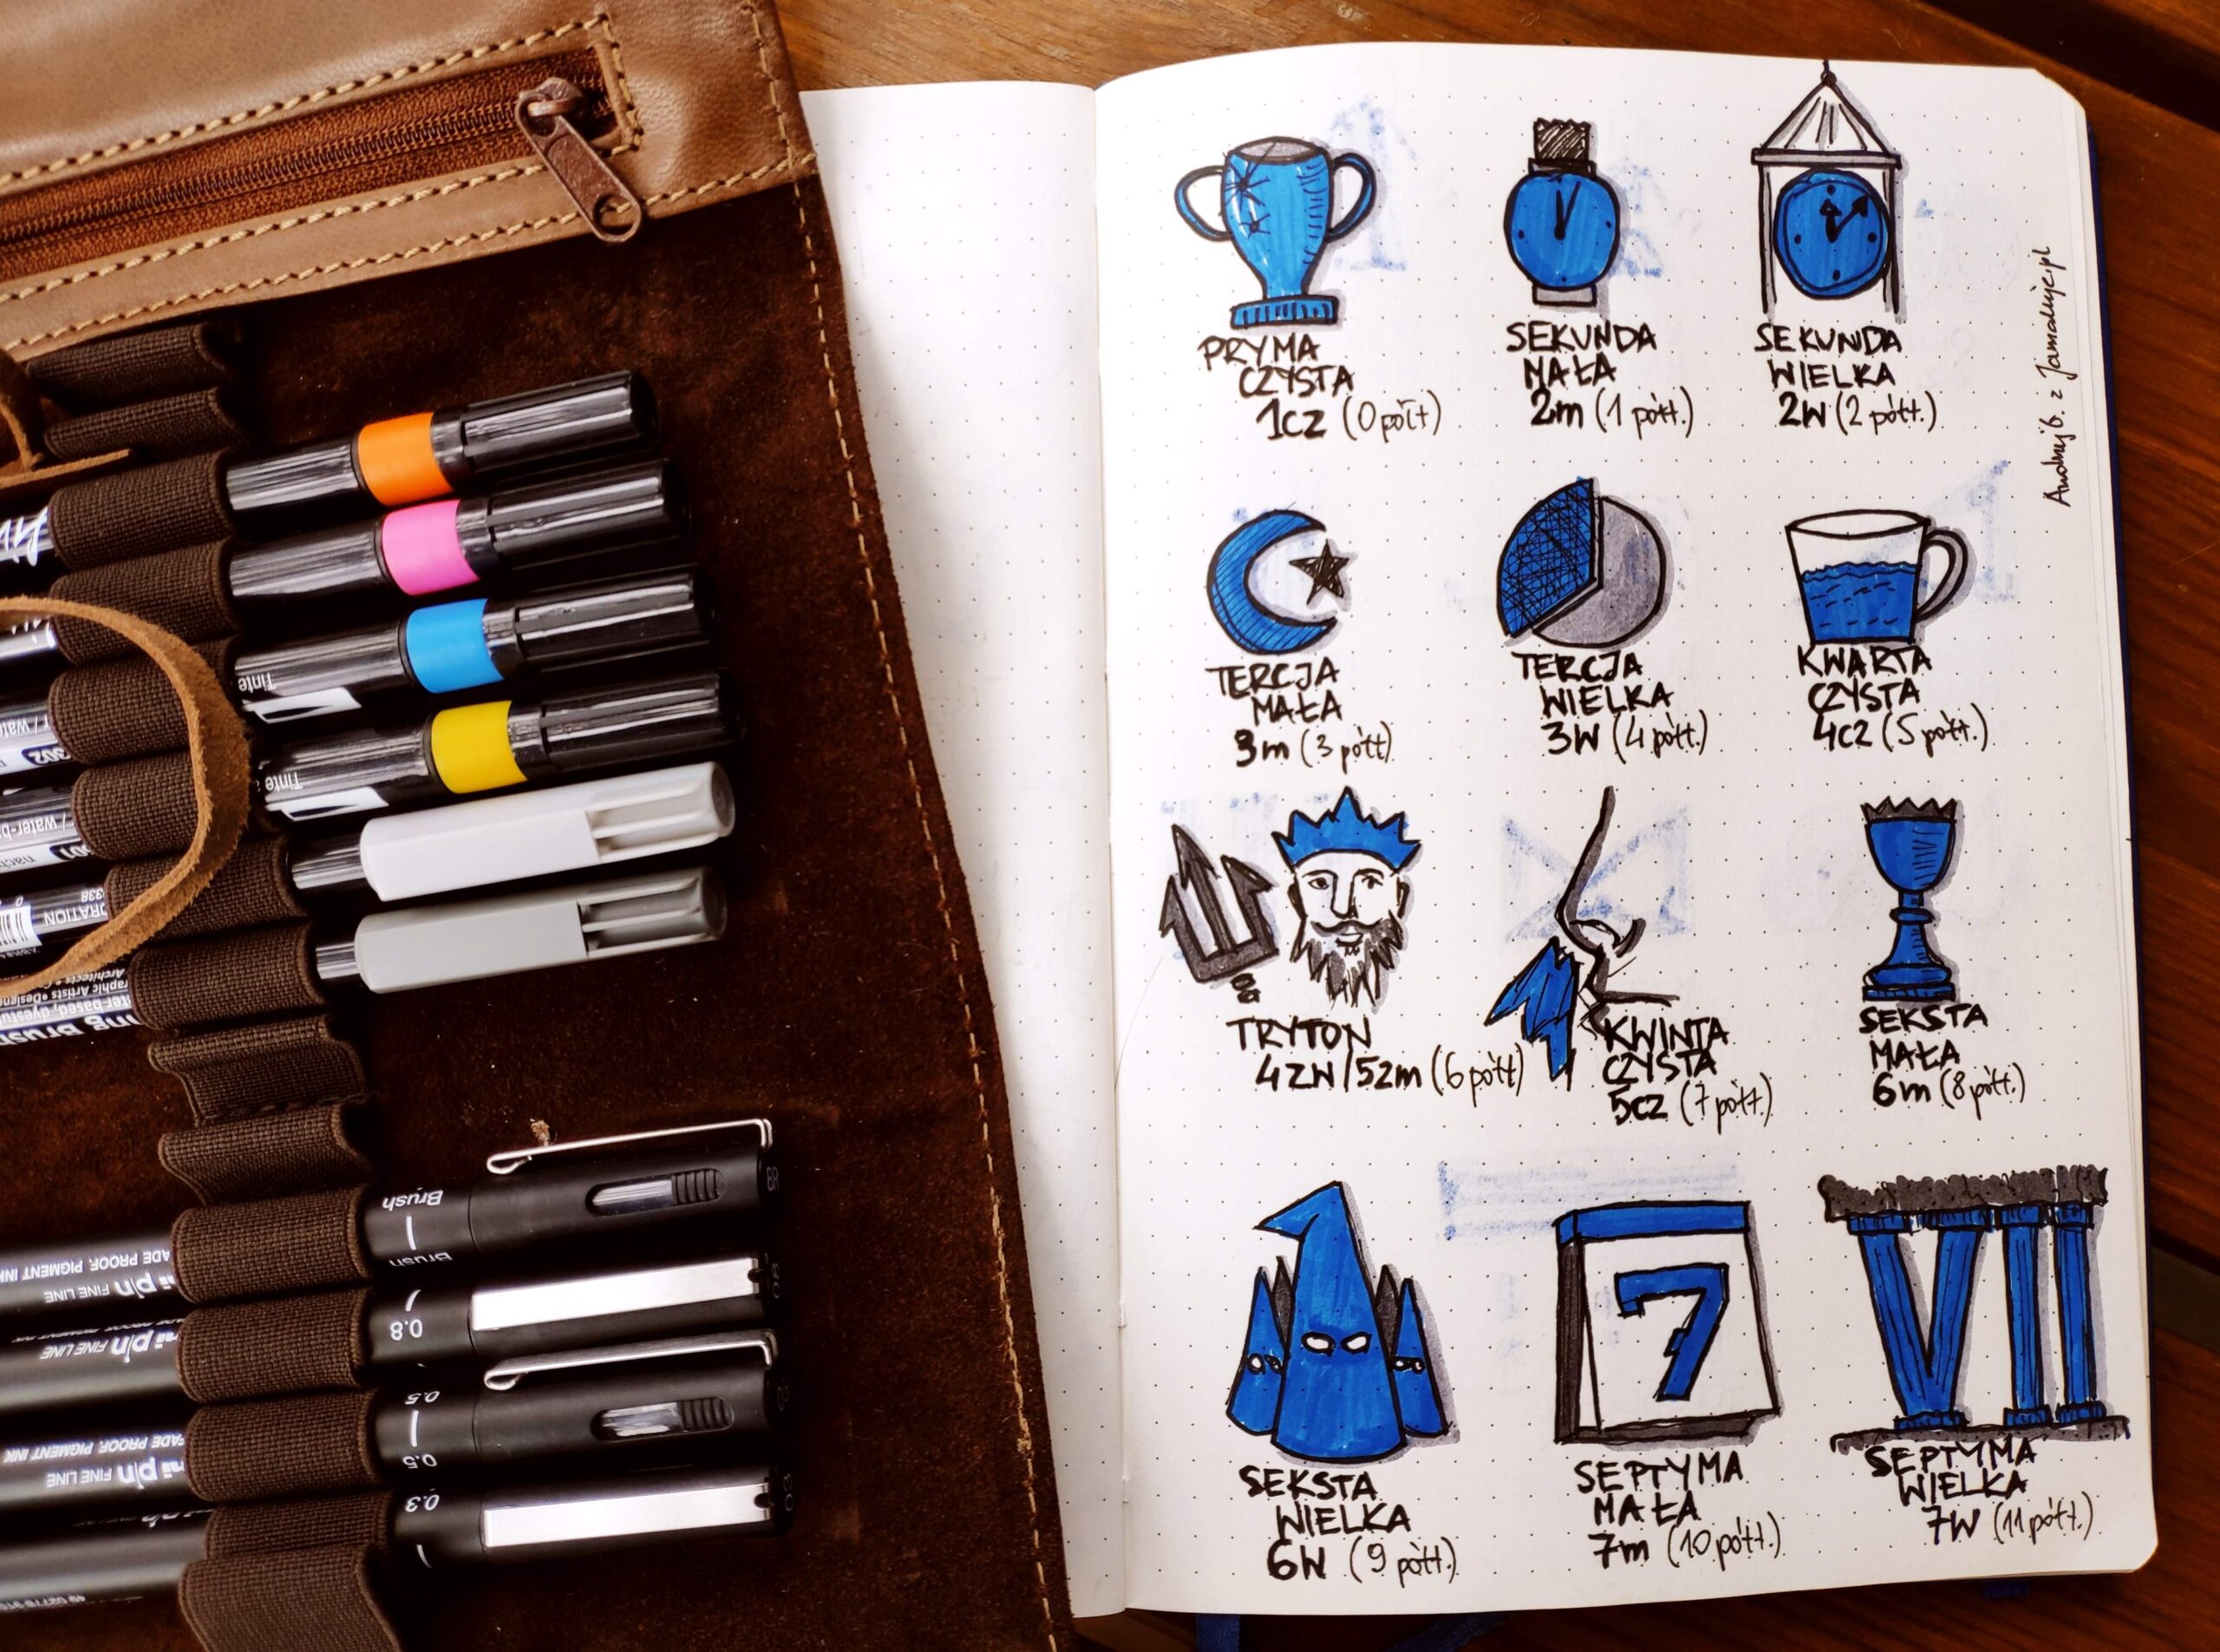 PRYMA
CZYSTA
1cz (0 półt)
SEKUNDA
MAŁA
2m (1 półt.)
SEKUNDA
WIELKA
2w (2 półt.)
TERCJA
MAŁA
3m (3 półt)
TERCJA
WIELKA
3w (4 półt.)
KWARTA
CZYSTA
4cz (5 półt.)
TRYTON
4zw/5zm (6 półt)
KWINTA
CZYSTA
5cz (7 półt.)
SEKSTA
MAŁA
6m (8 półt.)
SEKSTA
WIELKA
6w (9 półt.)
7
SEPTYMA
MAŁA
7m (10 półt.)
VII
SEPTYMA
WIELKA
7w (11 półt.)
Andrzej B. z Jamaluje.pl
Tinte
Tinte
302
338
Brush
Brush
ADE PROOF. PIGMENT INK
pin FINE LINE
0.8
pin FINE LINE
0.5
0.5
ADE PROOF. PIGMENT INK
pin FINE LINE
0.3